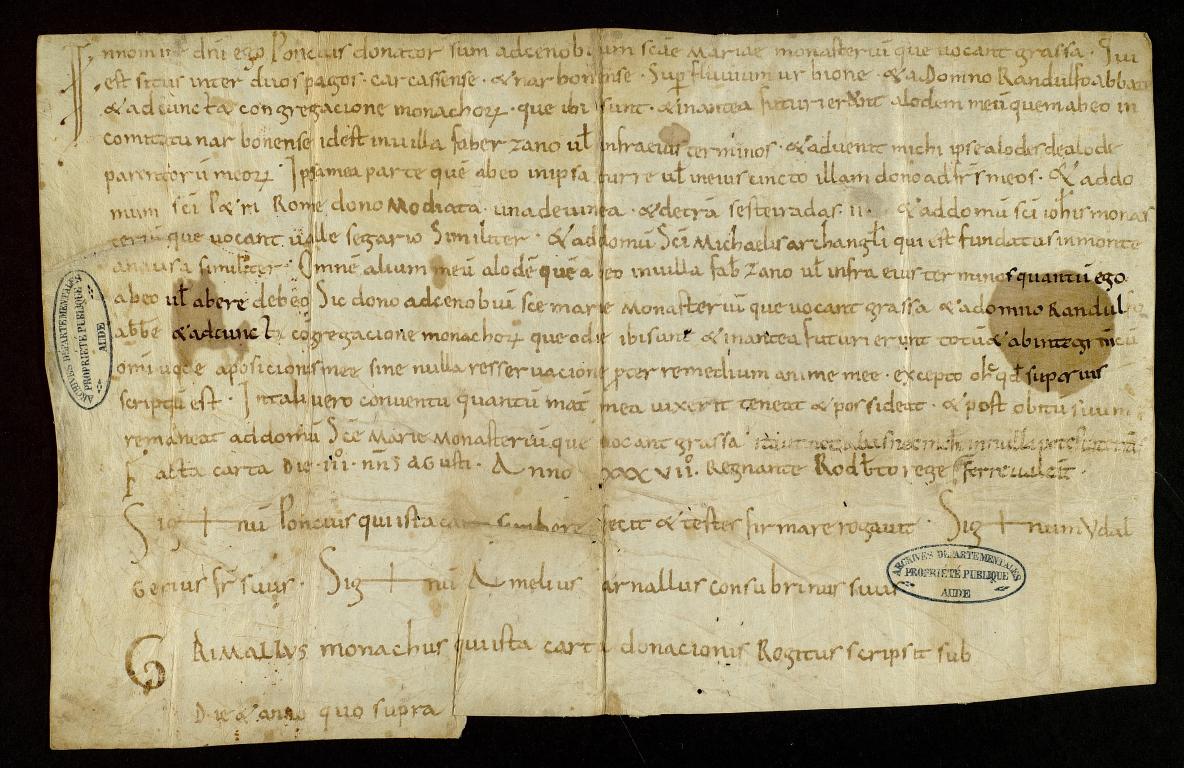 Innomine dni ego Poncius donator sum adcenobium sce Mariae monasteriu que uocant grassa. Qui
est situs inter duos pagos. carcassense. & narbonense. Sup fluuium urbione. & a Domno Randulfo abbate
& adcuncta congregacione monachor. que ibi sunt. & inantea futuri erunt alodem meu quem abeo in
comitatu narbonense idest inuilla faberzano ul infra eius terminos. & aduenit michi ipse alodes de alode
parentoru meor. Ipsa mea parte que abeo inipsa turre ul ineius cincto illam dono ad frs meos. & addo
mum sci P&ri Rome dono Modiata. una de uinea. & de tra sesteiradas. ii. & addomu sci iohis monas
teriu que uocant ualle segario Similiter. & addomu Sci Michaelis archangli qui est fundatus inmonte
anausa similiter. Omne alium meu alode que abeo inuilla fabzano ul infra eius terminos quantu ego
abeo ul abere debeo Sic dono adcenobiu sce marie Monasteriu que uocant grassa & adomno Randulfo
abbe & adcuncta cogregacione monachor que odie ibi sunt & inantea futuri erunt totu & abintegrincu
omi uoce aposicionis mee sine nulla resseruacione pter remedium anime mee. excepto oc qd superius
scriptu est. In tali uero conuentu quantu mat mea uixerit teneat & possideat. & post obitu suum
remaneat addomu Sce Marie Monasteriu que uocant grassa
Facta carta Die. iii. nns agusti. Anno XXXVII. Regnante Rodbto rege
Sig+nu Poncius qui ista fecit & testes firmare rogauit. Sig+num Vdal
gerius fr suus Sig+nu Amelius arnallus consubrinus suus
GRIMALLVS monachus qui ista carta donacionis Rogitus scripsit sub
Die & anno quo supra
ARCHIVES DÉPARTEMENTALES
PROPRIÉTÉ PUBLIQUE
AUDE
ARCHIVES DÉPARTEMENTALES
PROPRIÉTÉ PUBLIQUE
AUDE